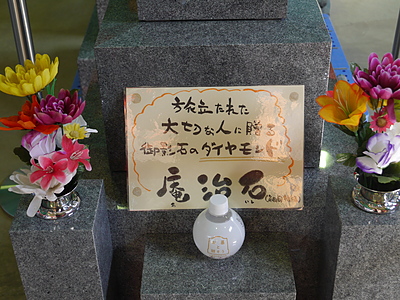 旅立たれた
大切な人に贈る
御影石のダイヤモンド!!
庵治石